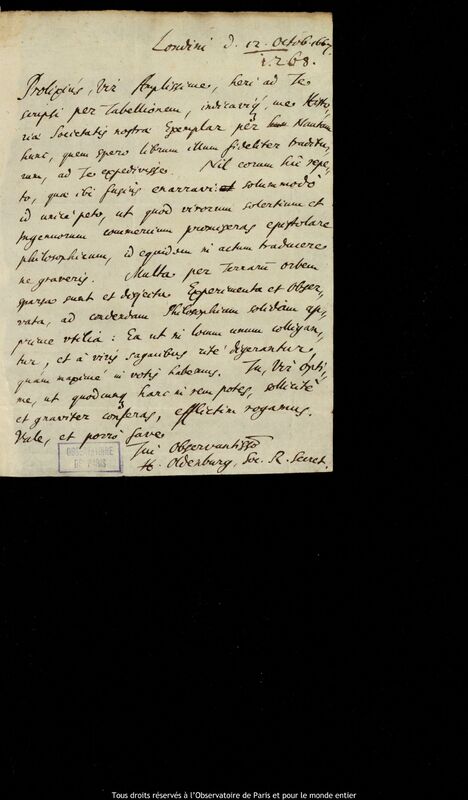 Londini d. 12. Octob. 1667.
1.268.
Prolixius, Vir Amplissime, heri ad Te
scripsi per Tabellionem, indicaviq, me Histo,
ria Societatis nostra Exemplar per Nautam
hunc, quem spero librum illum fideliter traditu,
rum, ad Te expedivisse. Nil eorum hic repe,
to, qua ibi fusius enarravi solummodò
id unicè peto, ut quod virorum solertium et
Ingeniorum commercium promiseras epistolare
philosophicum, id equidem in actum traducere
ne graveris. Multa per Terrarum orbem
sparsa sunt et disjecta Experimenta et Obser,,
vata, ad condendam Philosophiam solidam ap,,
prime utilia: Ea ut in locum unum colligan,,
tur, et à viris sagacibus ritè digerantur,
quam maximè in votis habemus. Tu, Vir Opti,,
me, ut quodcunq hanc in rem potes, sollicitè
et graviter conferas, efflictim rogamus.
Vale, et porrò fave
Tui Observantisso
H. Oldenburg, Soc. R. Secret.
OBSERVATOIRE
DE PARIS
Tous droits réservés à l'Observatoire de Paris et pour le monde entier